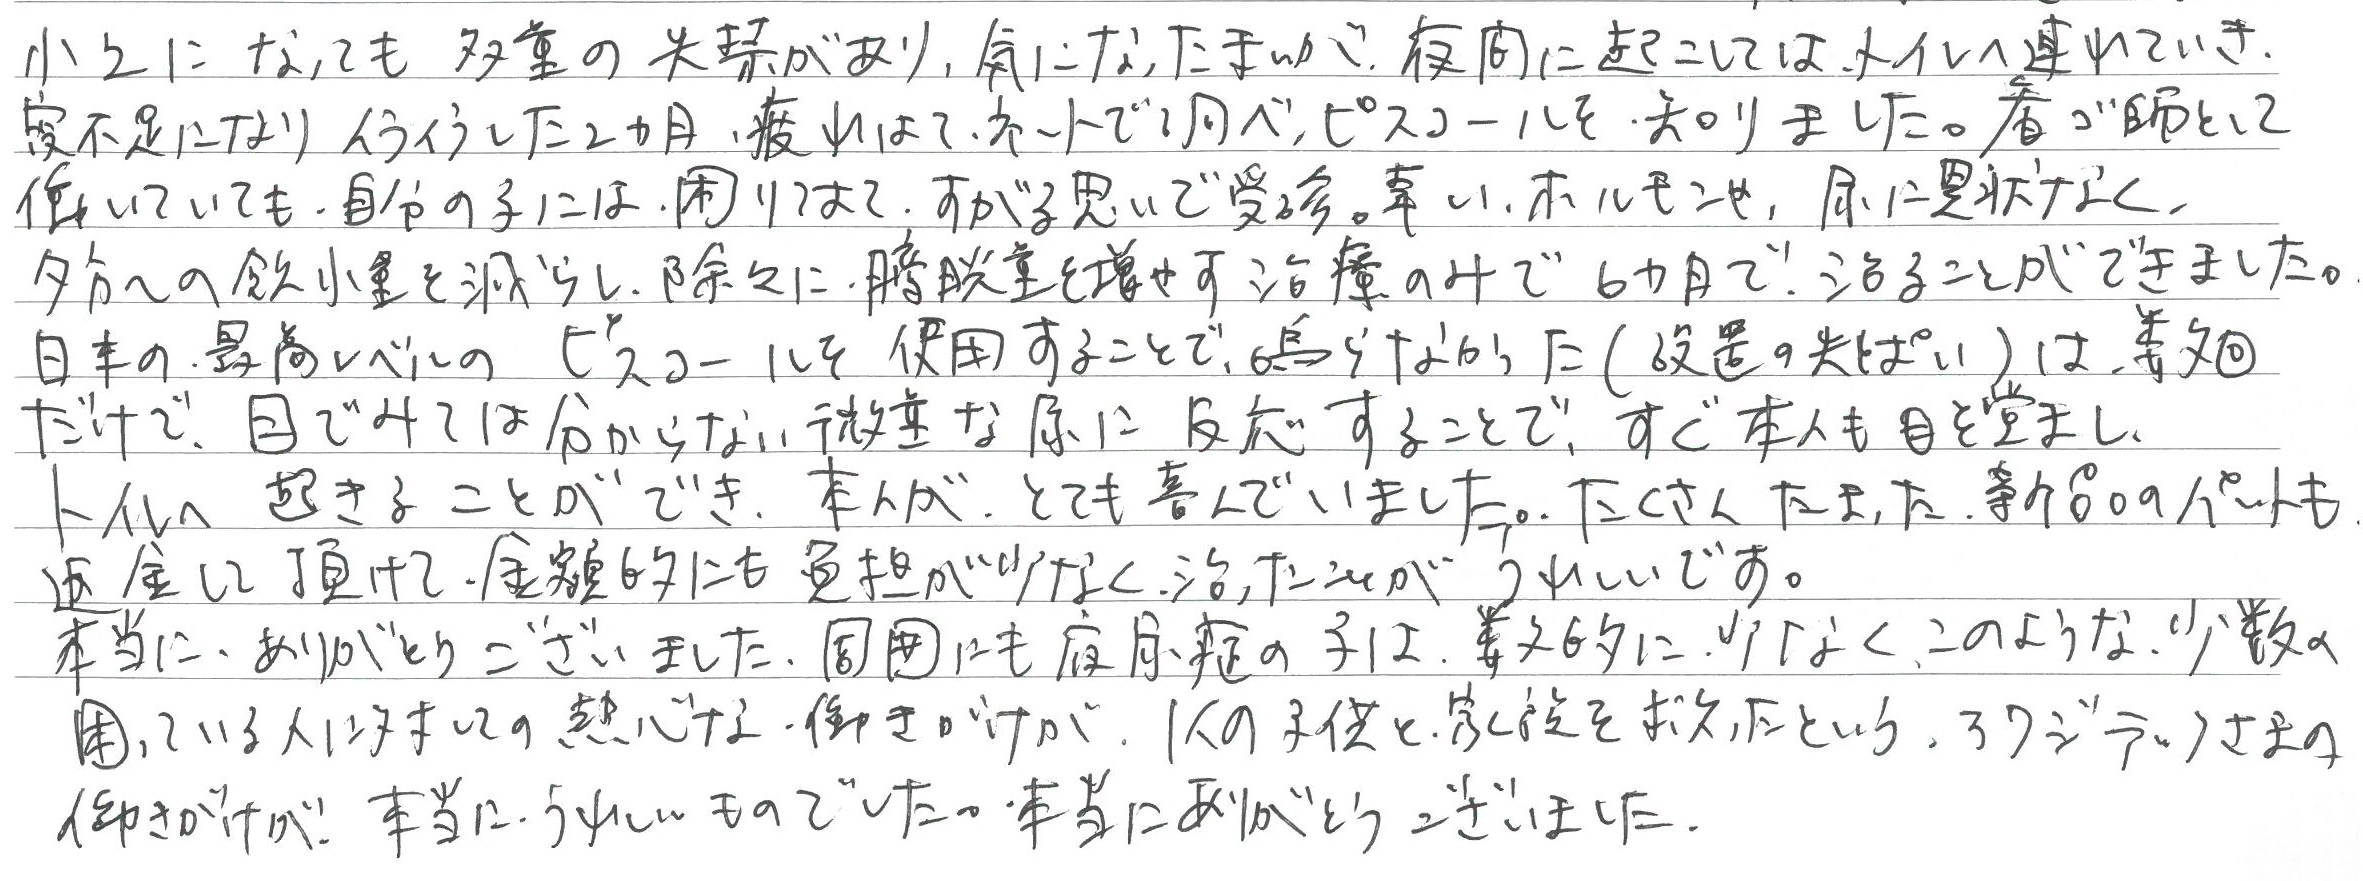 小2になっても多量の失禁があり、気になったままが、夜間に起こしてはトイレへ連れていき、
寝不足になりイライラした2カ月、疲れはて、ネットで調べ、ピスコールを知りました。看ゴ師として
働いていても、自分の子には、困りはて、すがる思いで受診。幸い、ホルモンや、尿に異状なく、
夕方への飲水量を減らし、除々に、膀胱量を増やす治療のみで6カ月で、治ることができました。
日本の最高レベルのピスコールを使用することで、鳴らなかった(設置の失ぱい)は、数回
だけで、目でみては分からない微量な尿に反応することで、すぐ本人も目を覚まし、
トイレへ起きることができ、本人が、とても喜んでいました。たくさんたまった、新品のパットも、
返金して頂けて、金額的にも負担が少なく、治ったことがうれしいです。
本当に、ありがとうございました。周囲にも夜尿症の子は、数的に少なく、このような、少数の
困っている人に対しての熱心な、働きがけが、1人の子供と、家族を救ったという、ワジテックさまの
働きがけが、本当に、うれしいものでした。本当にありがとうございました。